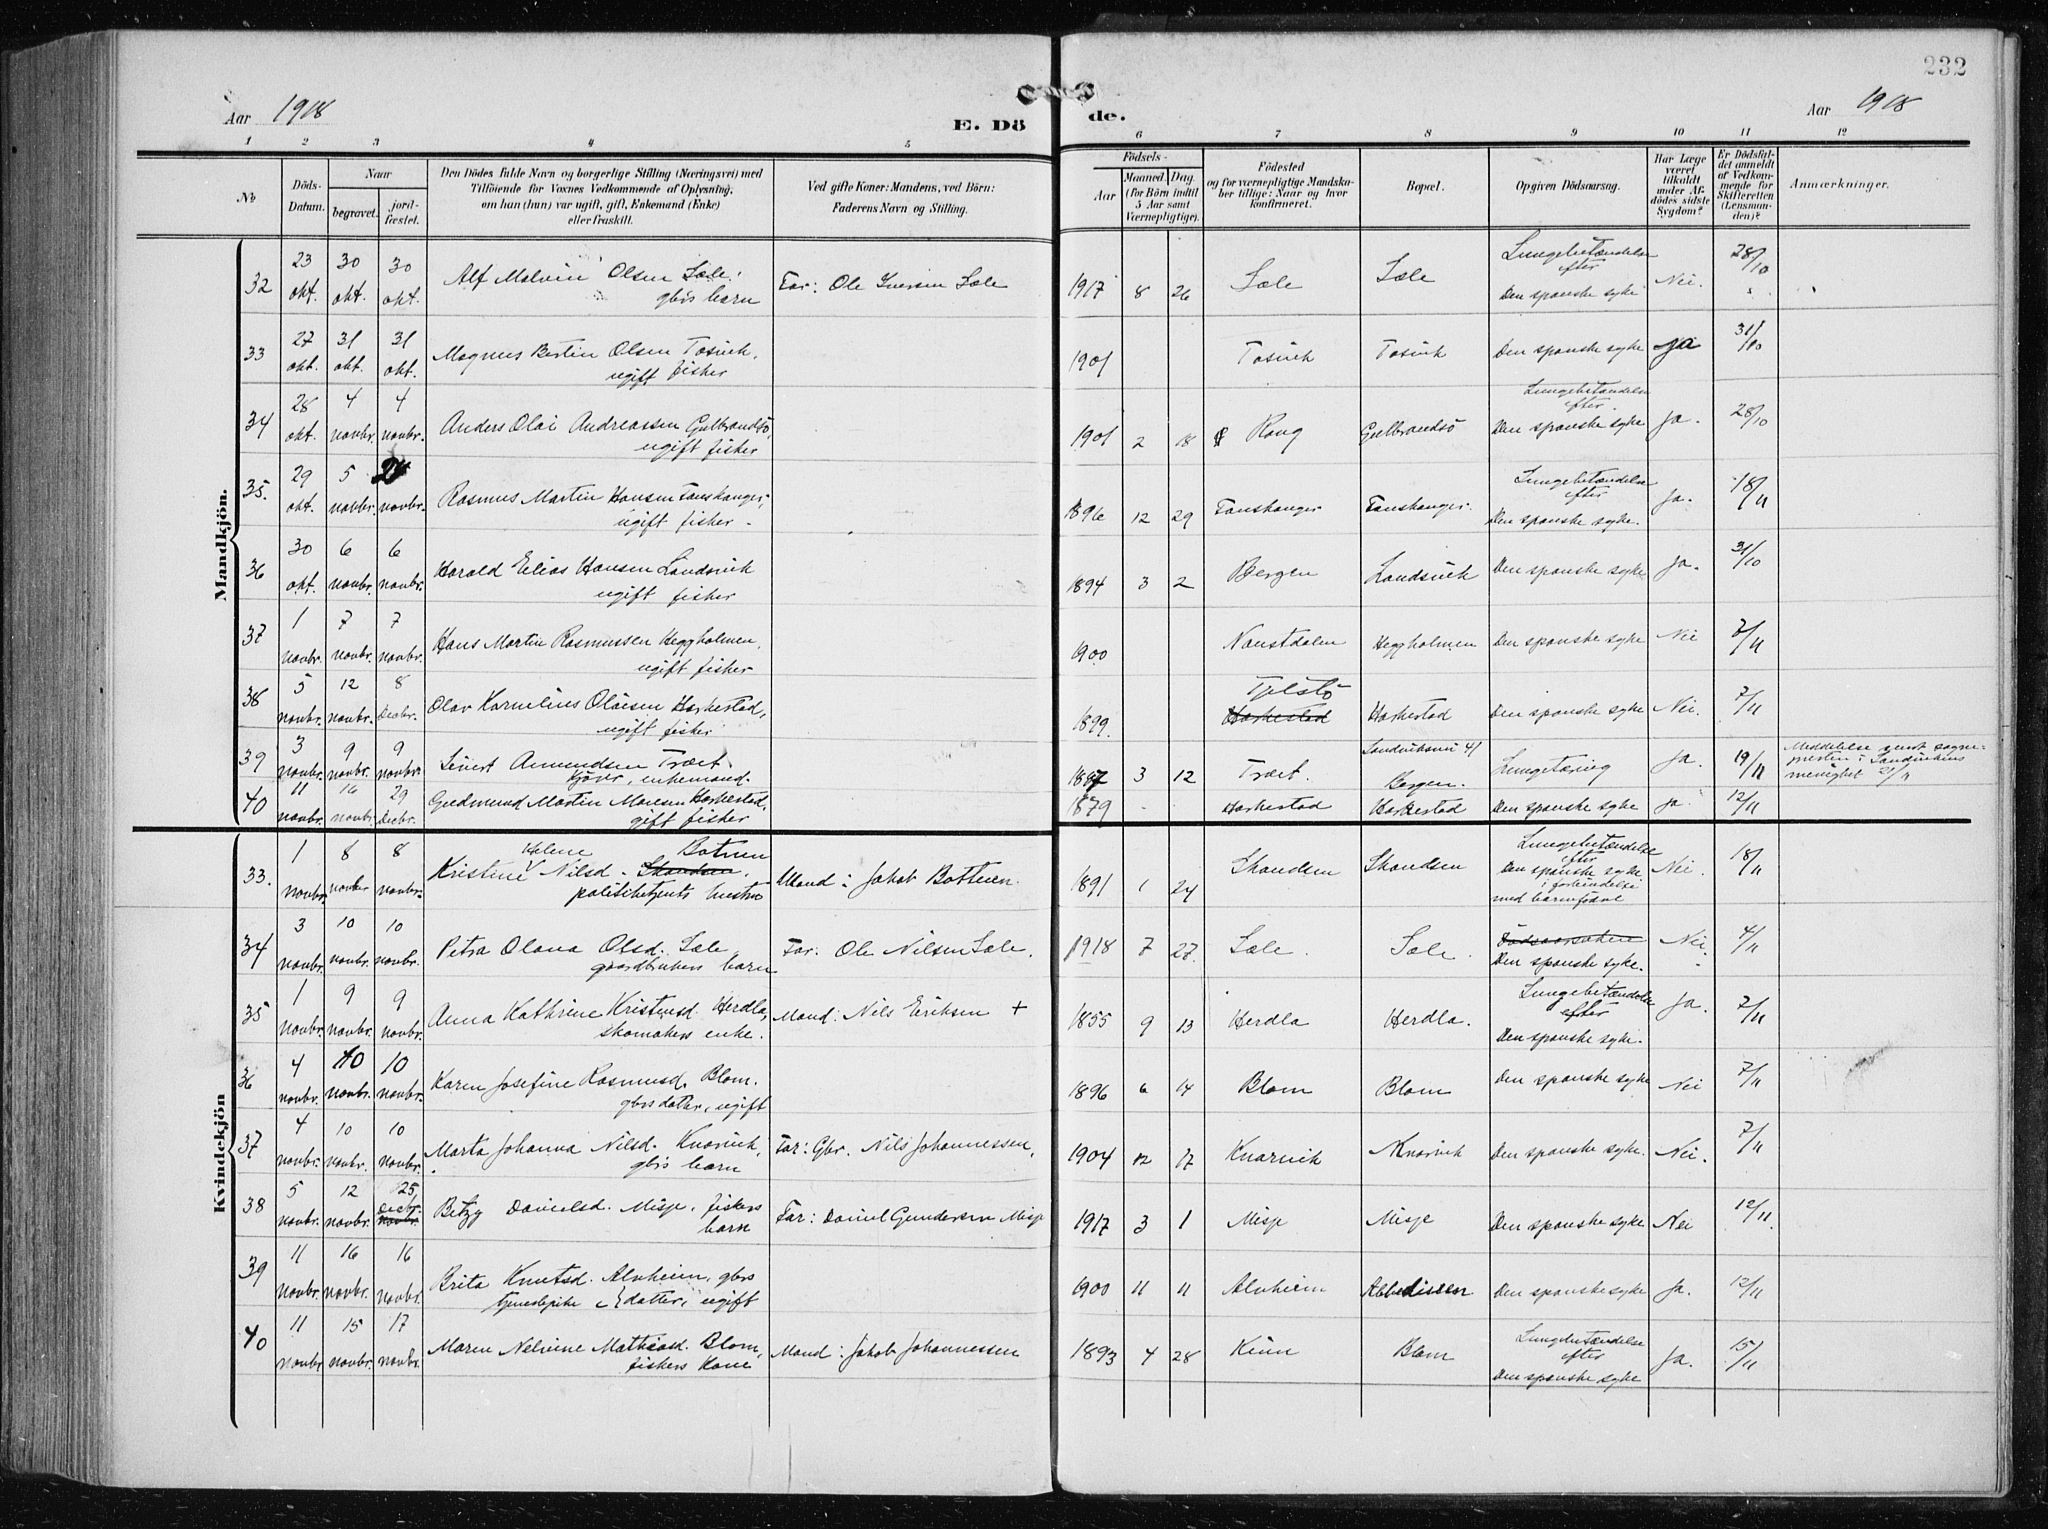 232
Aar 1918
E. Dö
de.
Aar 1918
1 2 3 4 5 6 7 8 9 10 11 12
No
Döds-Datum.
Naar
begravet.
jord-fæstet.
Den Dödes fulde Navn og borgerlige Stilling (Næringsvei) med
Tilföiende for Voxnes Vedkommende af Oplysning,
om han (hun) var ugift, gift, Enkemand (Enke)
eller fraskilt.
Ved gifte Koner: Mandens, ved Börn:
Faderens Navn og Stilling.
Födsels-
Aar
Maaned. Dag.
(for Börn indtil
5 Aar samt
Værnepligtige).
Födested
og for værnepligtige Mandska-
ber tillige: Naar og hvor
konfirmeret.
Bopæl.
Opgiven Dödsaarsag.
Har Læge
været
tilkaldt
under Af-
dödes sidste
Sygdom?
Er Dödsfal-
det anmeldt
af Vedkom-
mende for
Skifteretten
(Lensman-
den)?
Anmærkninger.
Mandkjön.
32 23 okt. 30 okt. 30 okt. Alf Malvin Olsen Sæle, gbrs barn Far: Ole Iversen Sæle 1917 8 26 Sæle Sæle Lungebetændelse efter Den spanske syke Nei. 28/10
33 27 okt. 31 okt. 31 okt. Magnus Bertin Olsen Tosvik, ugift fisker 1901 Tosvik Tosvik Den spanske syke ja 31/10
34 28 okt. 4 novbr. 4 novbr. Anders Olai Andreassen Gulbrandsö, ugift fisker 1901 2 18 Rong Gulbrandsö Lungebetændelse efter. Den spanske syke Ja. 28/10
35. 29 okt. 5 novbr. novbr. Rasmus Martin Hansen Fanskanger, ugift fisker 1896 12 29 Fanskanger Fanskanger. Lungebetændelse efter Den spanske syke. Ja. 18/11
36 30 okt. 6 novbr. 6 novbr. Harald Elias Hansen Landsvik ugift fisker 1894 3 2 Bergen Landsvik Den spanske syke Ja. 31/10
37 1 novbr. 7 novbr. 7 novbr. Hans Martin Rasmussen Heggholmen, ugift fisker 1900 Naustdalen Heggholmen Den spanske syke Nei /11
38 5 novbr. 12 novbr. 8 Decbr. Olav Kornelius Olaisen Harkestad, ugift fisker 1899. Tjelstö Harkestad Harkestad Den spanske syke Nei. 7/11
39 3 novbr. 9 novbr. 9 novbr. Sivert Amundsen Træet, enkemand. 1887 3 12 Træet. Sandviksvei 41 Bergen. Lungetæring Ja. 19/11 Meddelelse sendt sogne-
presten i Sandvikens
menighet 21/11
40 11 novbr. 16 novbr. 29 Decbr. Gudmund Martin Monsen Harkestad, gift fisker 1879 Harkestad Harkestad Den spanske syke ja 12/11
Kvindekjön
33. 1 novbr. 8 novbr 8 novbr. Kristine Helene Nilsd. Skandsen. Botnen politibetjents hustru Mand: Jakob Bottnen. 1891 1 24 Skandsen Skandsen Lungebetændelse efter Den spanske syke i forbindelse med barnefödsel Nei. 18/11
34 3 novbr. 10 novbr. 10 novbr. Petra Olana Olsd. Sæle gaardbrukers barn Far: Ole Nilsen Sæle. 1918 7 27. Sæle. Sæle. Den spanske syke. Nei. 4/11
35 1 novbr. 9 novbr. 9 novbr. Anna Kathrine Kristensd. Herdla, skomakers enke. Mand: Nils Eriksen + 1855 9 13 Herdla Herdla. Lungebetændelse efter Den spanske syke. Ja. 7/11
36 4 novbr. 10 novbr. 10 novbr. Karen Josefine Rasmusd. Blom. gbrs datter, ugift 1896 6 14 Blom Blom Den spanske syke Nei 7/11
37 4 novbr. 10 novbr. 10 novbr. Marta Johanna Nilsd. Knarvik, gbrs barn Far: Gbr. Nils Johannessen, 1904 12 17 Knarvik Knarvik Den spanske syke. Nei. 7/11
38 5 novbr. 12 novbr. 25 Decbr. novbr. Betzy Danielsd. Misje, fiskers barn Far: Daniel Gundersen Misje 1917 3 1 Misje Misje Den spanske syke Nei 12/11.
39 11 novbr. 16 novbr. 16 novbr. Brita Knutsd. Alvheim, gbrs datter, tjenestepike ugift 1900 11 11 Alvheim Abbedissen Den spanske syke Ja. 12/11
40 11 novbr 15 novbr. 17 novbr. Maren Nelvine Mathiasd. Blom, fiskers kone Mand: Jakob Johannessen 1893 4 28 Kinn Blom Lungebetændelse efter Den spanske syke Ja. 15/11